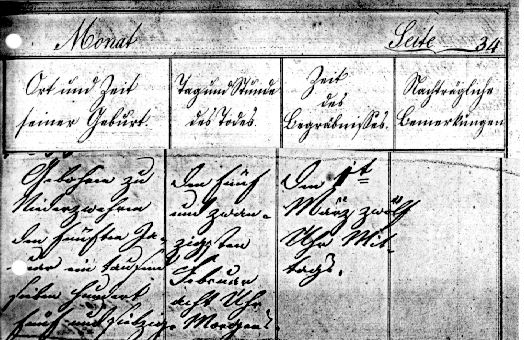 Monat Seite 34
Ort und Zeit
seiner Geburt.
Tag und Stunde
des Todes.
Zeit
des
Begräbnisses.
Nachträgliche
Bemerkungen
Gebohren zu
Niederzwehren
den fünften Ja-
nuar ein tausend
sieben hundert
fünf und siebzig.
den fünf
und zwan-
zigsten
Februar
acht Uhr
Morgens.
den 1t
März zwölf
Uhr Mit-
tags.